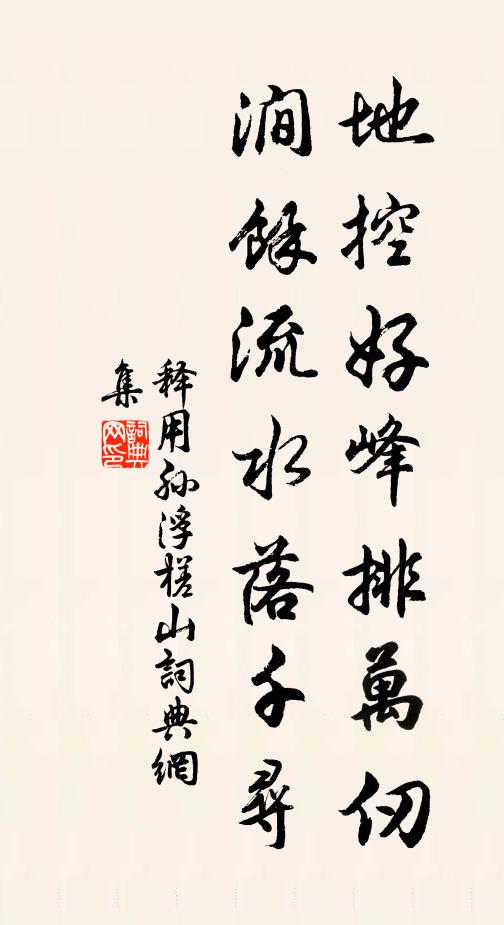 地控好峰排萬仞
澗餘流水落千尋
释用孙浮槎山詞典網
集
詞典网印